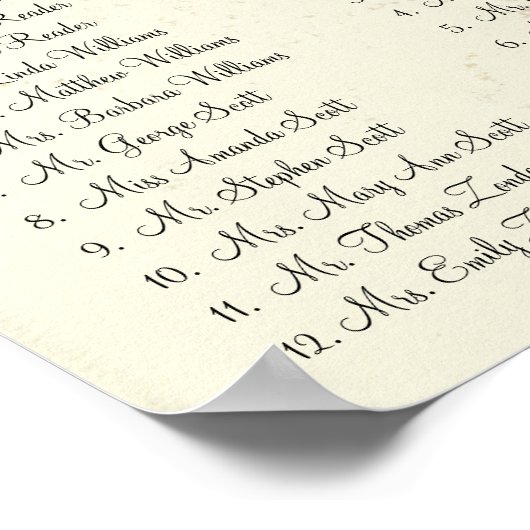 Reader
Reader
Linda Williams
Matthew Williams
Mrs. Barbara Williams
Mr. George Scott
8. Miss Amanda Scott
9. Mr. Stephen Scott
10. Mrs. Mary Ann Scott
11. Mr. Thomas
12. Mrs. Emily
4.
5.
6.